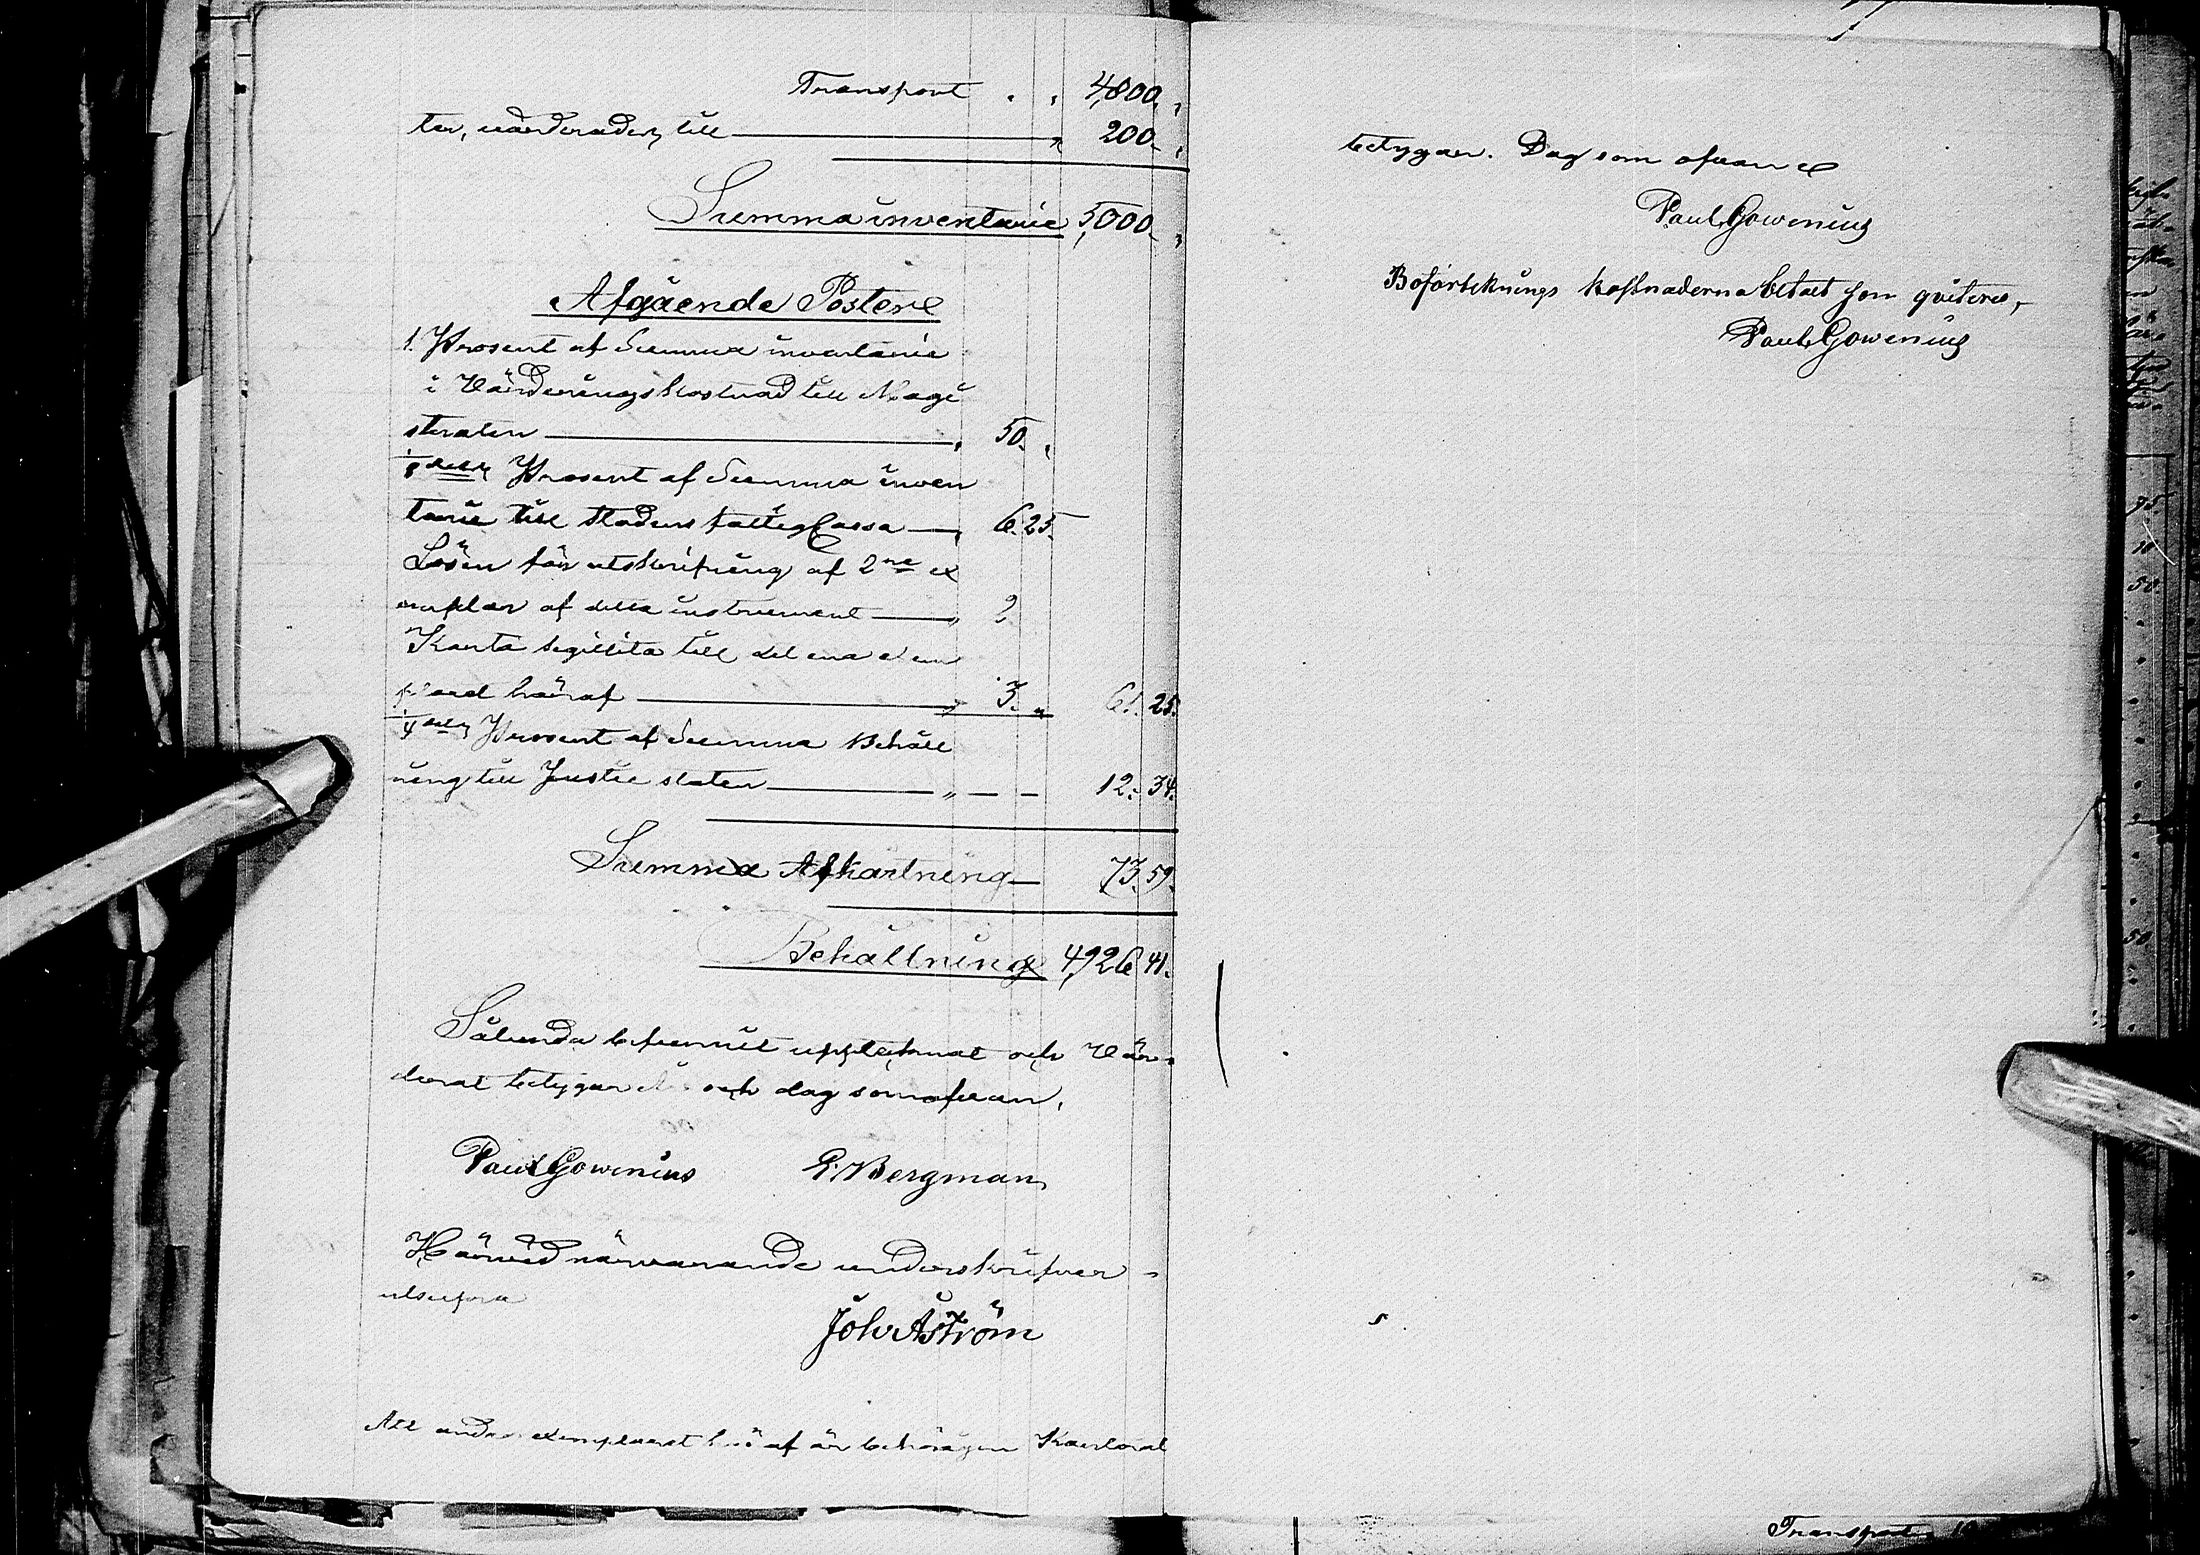 Transport . . 4,800. "
ter, värderade till — " 200. "
Summa inventarie 5,000. "
Afgående Poster
1. Prosent af Summa inventarie
i Värderingskostnad till Magi
straten — " 50. "
1/8 dels Prosent af Summa inven
tarie till Stadens fattig Cassa — " 6. 25.
Lösen för utskrifning af 2ne ex
emplar af detta instrument — " 2
Karta sigillita till det ena exem
plaret häraf — " 3. " 61. 25.
1/4 dels Prosent af Summa Behåll
ning till Justie staten — " — — 12. 34.
Summa Afkortning — 73. 59.
Behållning 4,926 41.
Sålunda befunnit upptecknat och Vär-
derat betygar År och dag som ofvan.
Paul Gowenius E. Bergman
Härvid närvarande underskrifver
utsupra
Joh Åström
Att andra exemplaret häraf är behörigen Karterat
betygar. Dag som ofvan
Paul Gowenius
Boförteknings kostnaderna betalt som qviteras,
Paul Gowenius
Transport